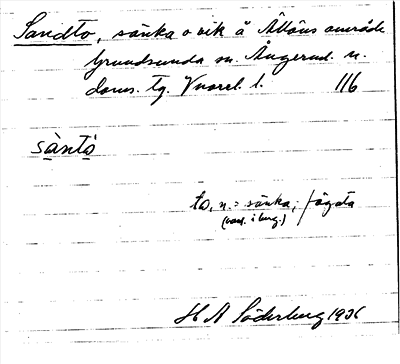 Sandto, sänka o vik å Åttöns område
Grundsunda sn. Ångerml. n.
doms. tg. Vuorel. l. 116
sàntò
to, n. = sänka; fågata
(vanl. i berg.)
H A Söderberg 1936